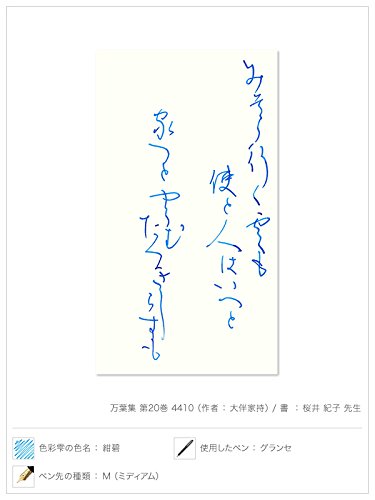 みそら行く雲も
使と人はいへと
家つとやらむ
たつきしらすも
万葉集 第20巻 4410 (作者：大伴家持) / 書 ：桜井 紀子 先生
色彩雫の色名：紺碧
使用したペン：グランセ
ペン先の種類：M (ミディアム)